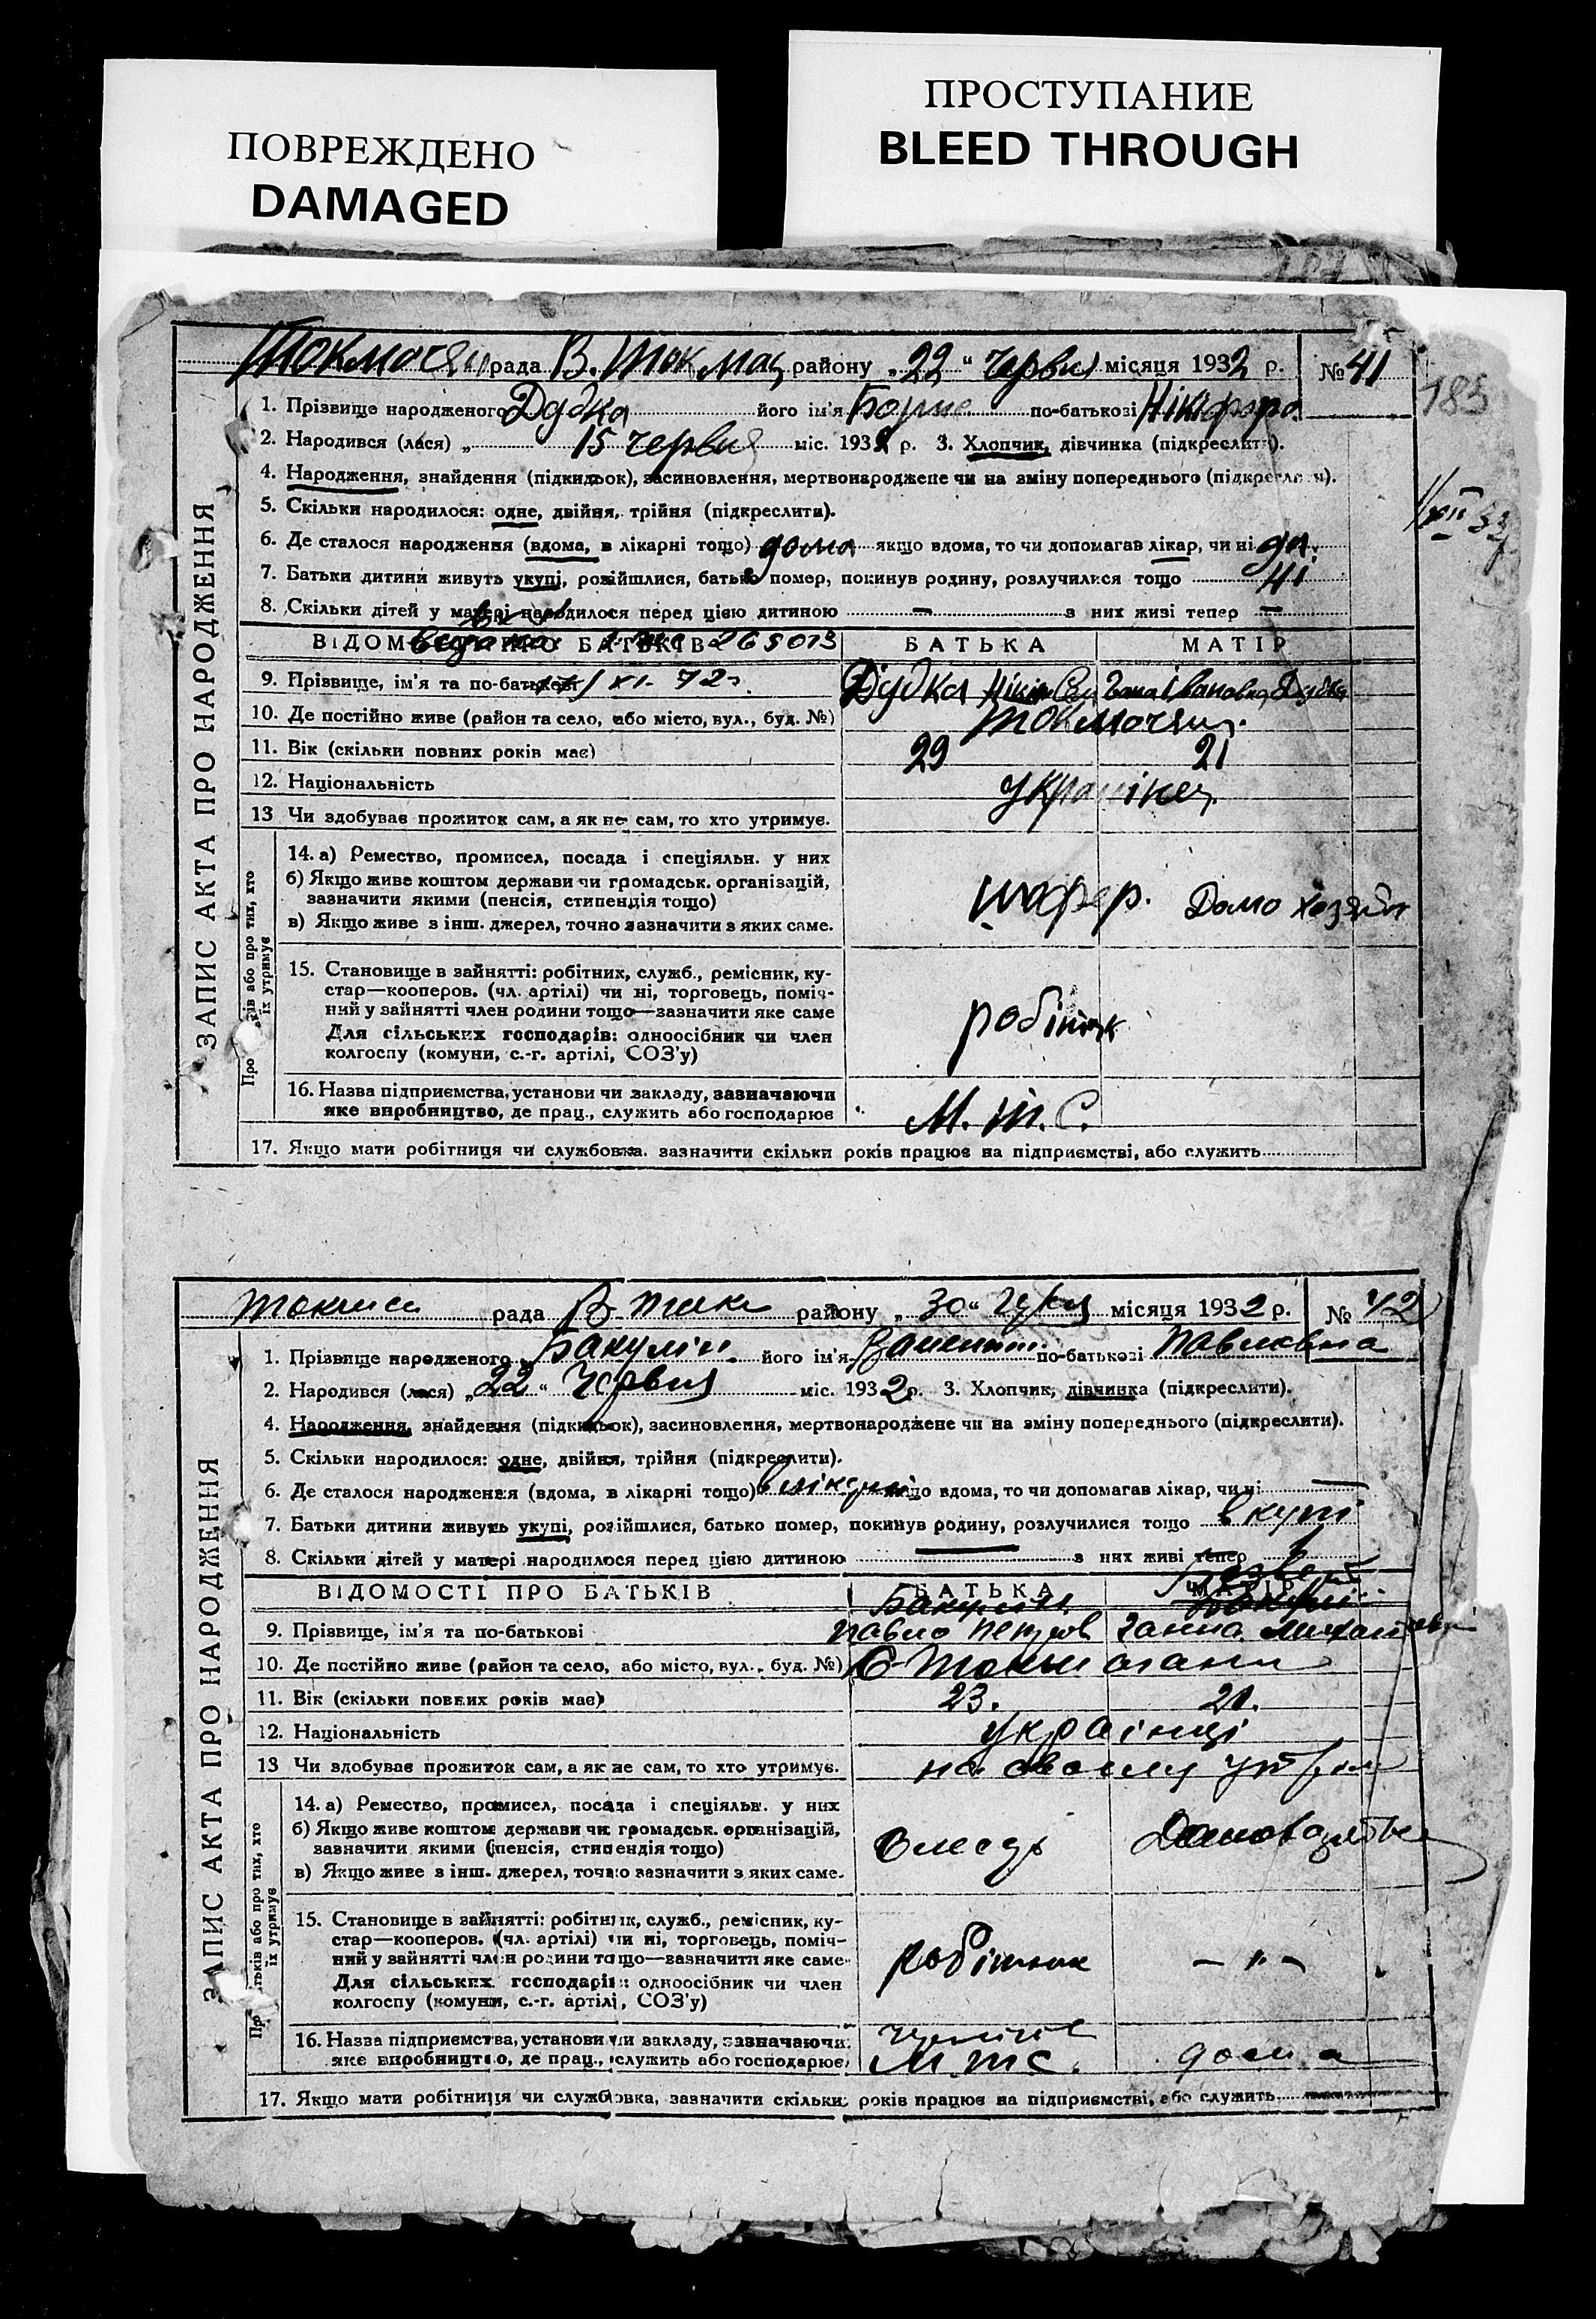 ПОВРЕЖДЕНО
DAMAGED
ПРОСТУПАНИЕ
BLEED THROUGH
ЗАПИС АКТА ПРО НАРОДЖЕННЯ
рада В. Токмац району „22“ червня місяця 1932 р. № 41
183
1. Прізвище народженого Дудка його ім'я Борис по-батькові Нікіфоро.
2. Народився (лася) „ 15 червня міс. 1932 р. 3. Хлопчик, дівчинка (підкреслити).
4. Народження, знайдення (підкидьок), засиновлення, мертвонароджене чи на зміну попереднього (підкреслити).
5. Скільки народилося: одне, двійня, трійня (підкреслити).
6. Де сталося народження (вдома, в лікарні тощо) дома якщо вдома, то чи допомагав лікар, чи ні да.
7. Батьки дитини живуть укупі, розійшлися, батько помер, покинув родину, розлучилися тощо
8. Скільки дітей у матері народилося перед цією дитиною — з них живі тепер —
ВІДОМОСТІ ПРО БАТЬКІВ 265013 БАТЬКА МАТІР
9. Прізвище, ім'я та по-батькові XI. 72 Дудка Гана Івановна Дудка
10. Де постійно живе (район та село, або місто, вул., буд. №)
11. Вік (скільки повних років має) 29 21
12. Національність українец.
13 Чи здобував прожиток сам, а як не сам, то хто утримує.
Про батьків або про тих, хто їх утримує
14. а) Ремество, промисел, посада і спеціяльн. у них
б) Якщо живе коштом держави чи громадськ. організацій,
зазначити якими (пенсія, стипендія тощо)
в) Якщо живе з інш. джерел, точно зазначити з яких саме.
шофер. Домо хозяйк
15. Становище в зайнятті: робітник, служб., ремісник, ку-
стар—кооперов. (чл. артілі) чи ні, торговець, поміч-
ний у зайнятті член родини тощо—зазначити яке саме
Для сільських господарів: одноосібник чи член
колгоспу (комуни, с.-г. артілі, СОЗ'у)
робітник
16. Назва підприємства, установи чи закладу, зазначаючи
яке виробництво, де прац., служить або господарює
М. т. С.
17. Якщо мати робітниця чи службовка. зазначити скільки років працює на підприємстві, або служить
ЗАПИС АКТА ПРО НАРОДЖЕННЯ
рада В. Ток району „30“ місяця 1932 р. № 42
1. Прізвище народженого Бакулін його ім'я по-батькові Павловна
2. Народився (лася) „22“ Червня міс. 1932 р. 3. Хлопчик, дівчинка (підкреслити).
4. Народження, знайдення (підкидьок), засиновлення, мертвонароджене чи на зміну попереднього (підкреслити).
5. Скільки народилося: одне, двійня, трійня (підкреслити).
6. Де сталося народження (вдома, в лікарні тощо) якщо вдома, то чи допомагав лікар, чи ні —
7. Батьки дитини живуть укупі, розійшлися, батько помер, покинув родину, розлучилися тощо вкупі
8. Скільки дітей у матері народилося перед цією дитиною — з них живі тепер
ВІДОМОСТІ ПРО БАТЬКІВ БАТЬКА МАТІР
Бакулін
9. Прізвище, ім'я та по-батькові Павло Петров Ганна
10. Де постійно живе (район та село, або місто, вул., буд. №)
11. Вік (скільки повних років має) 23. 21.
12. Національність українці
13 Чи здобував прожиток сам, а як не сам, то хто утримує. на своему
Про батьків або про тих, хто їх утримує
14. а) Ремество, промисел, посада і спеціяльн. у них
б) Якщо живе коштом держави чи громадськ. організацій,
зазначити якими (пенсія, стипендія тощо)
в) Якщо живе з інш. джерел, точно зазначити з яких саме.
слесарь
15. Становище в зайнятті: робітник, служб., ремісник, ку-
стар—кооперов. (чл. артілі) чи ні, торговець, поміч-
ний у зайнятті член родини тощо—зазначити яке саме
Для сільських господарів: одноосібник чи член
колгоспу (комуни, с.-г. артілі, СОЗ'у)
робітник — " —
16. Назва підприємства, установи чи закладу, зазначаючи
яке виробництво, де прац., служить або господарює
МТС. дома
17. Якщо мати робітниця чи службовка, зазначити скільки років працює на підприємстві, або служить